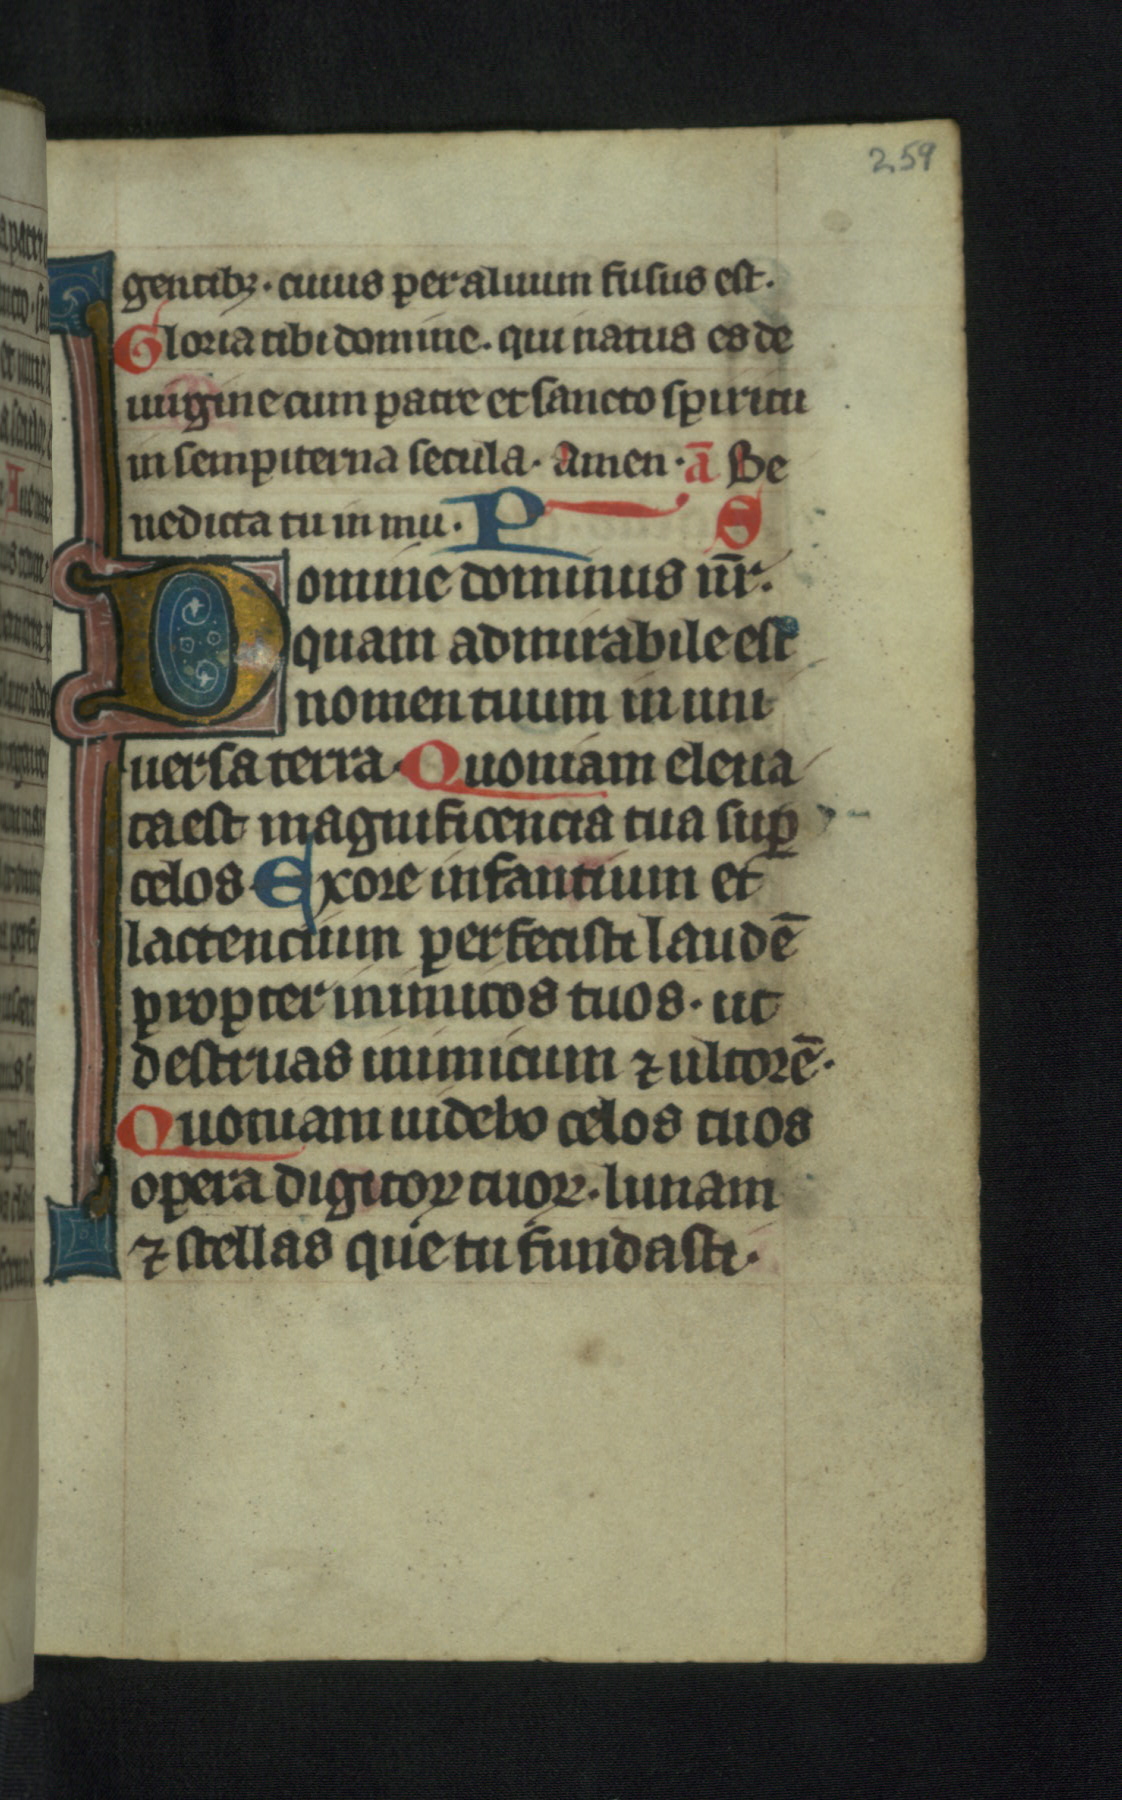 259
gentibꝫ · cuius per aluum fusus est.
Gloria tibi domine. qui natus es de
uirgine cum patre et sancto spiritu
in sempiterna secula. amen. ā Be
nedicta tu in mu. P S
Domine dominus nr̄.
quam admirabile est
nomen tuum in uni
uersa terra. Quoniam eleua
ta est magnificencia tua suꝑ
celos. Ex ore infantium et
lactencium perfecisti laudē
propter inimicos tuos. ut
destruas inimicum ⁊ ultorē.
Quoniam uidebo celos tuos
opera digitoꝝ tuoꝝ. lunam
⁊ stellas que tu fundasti.